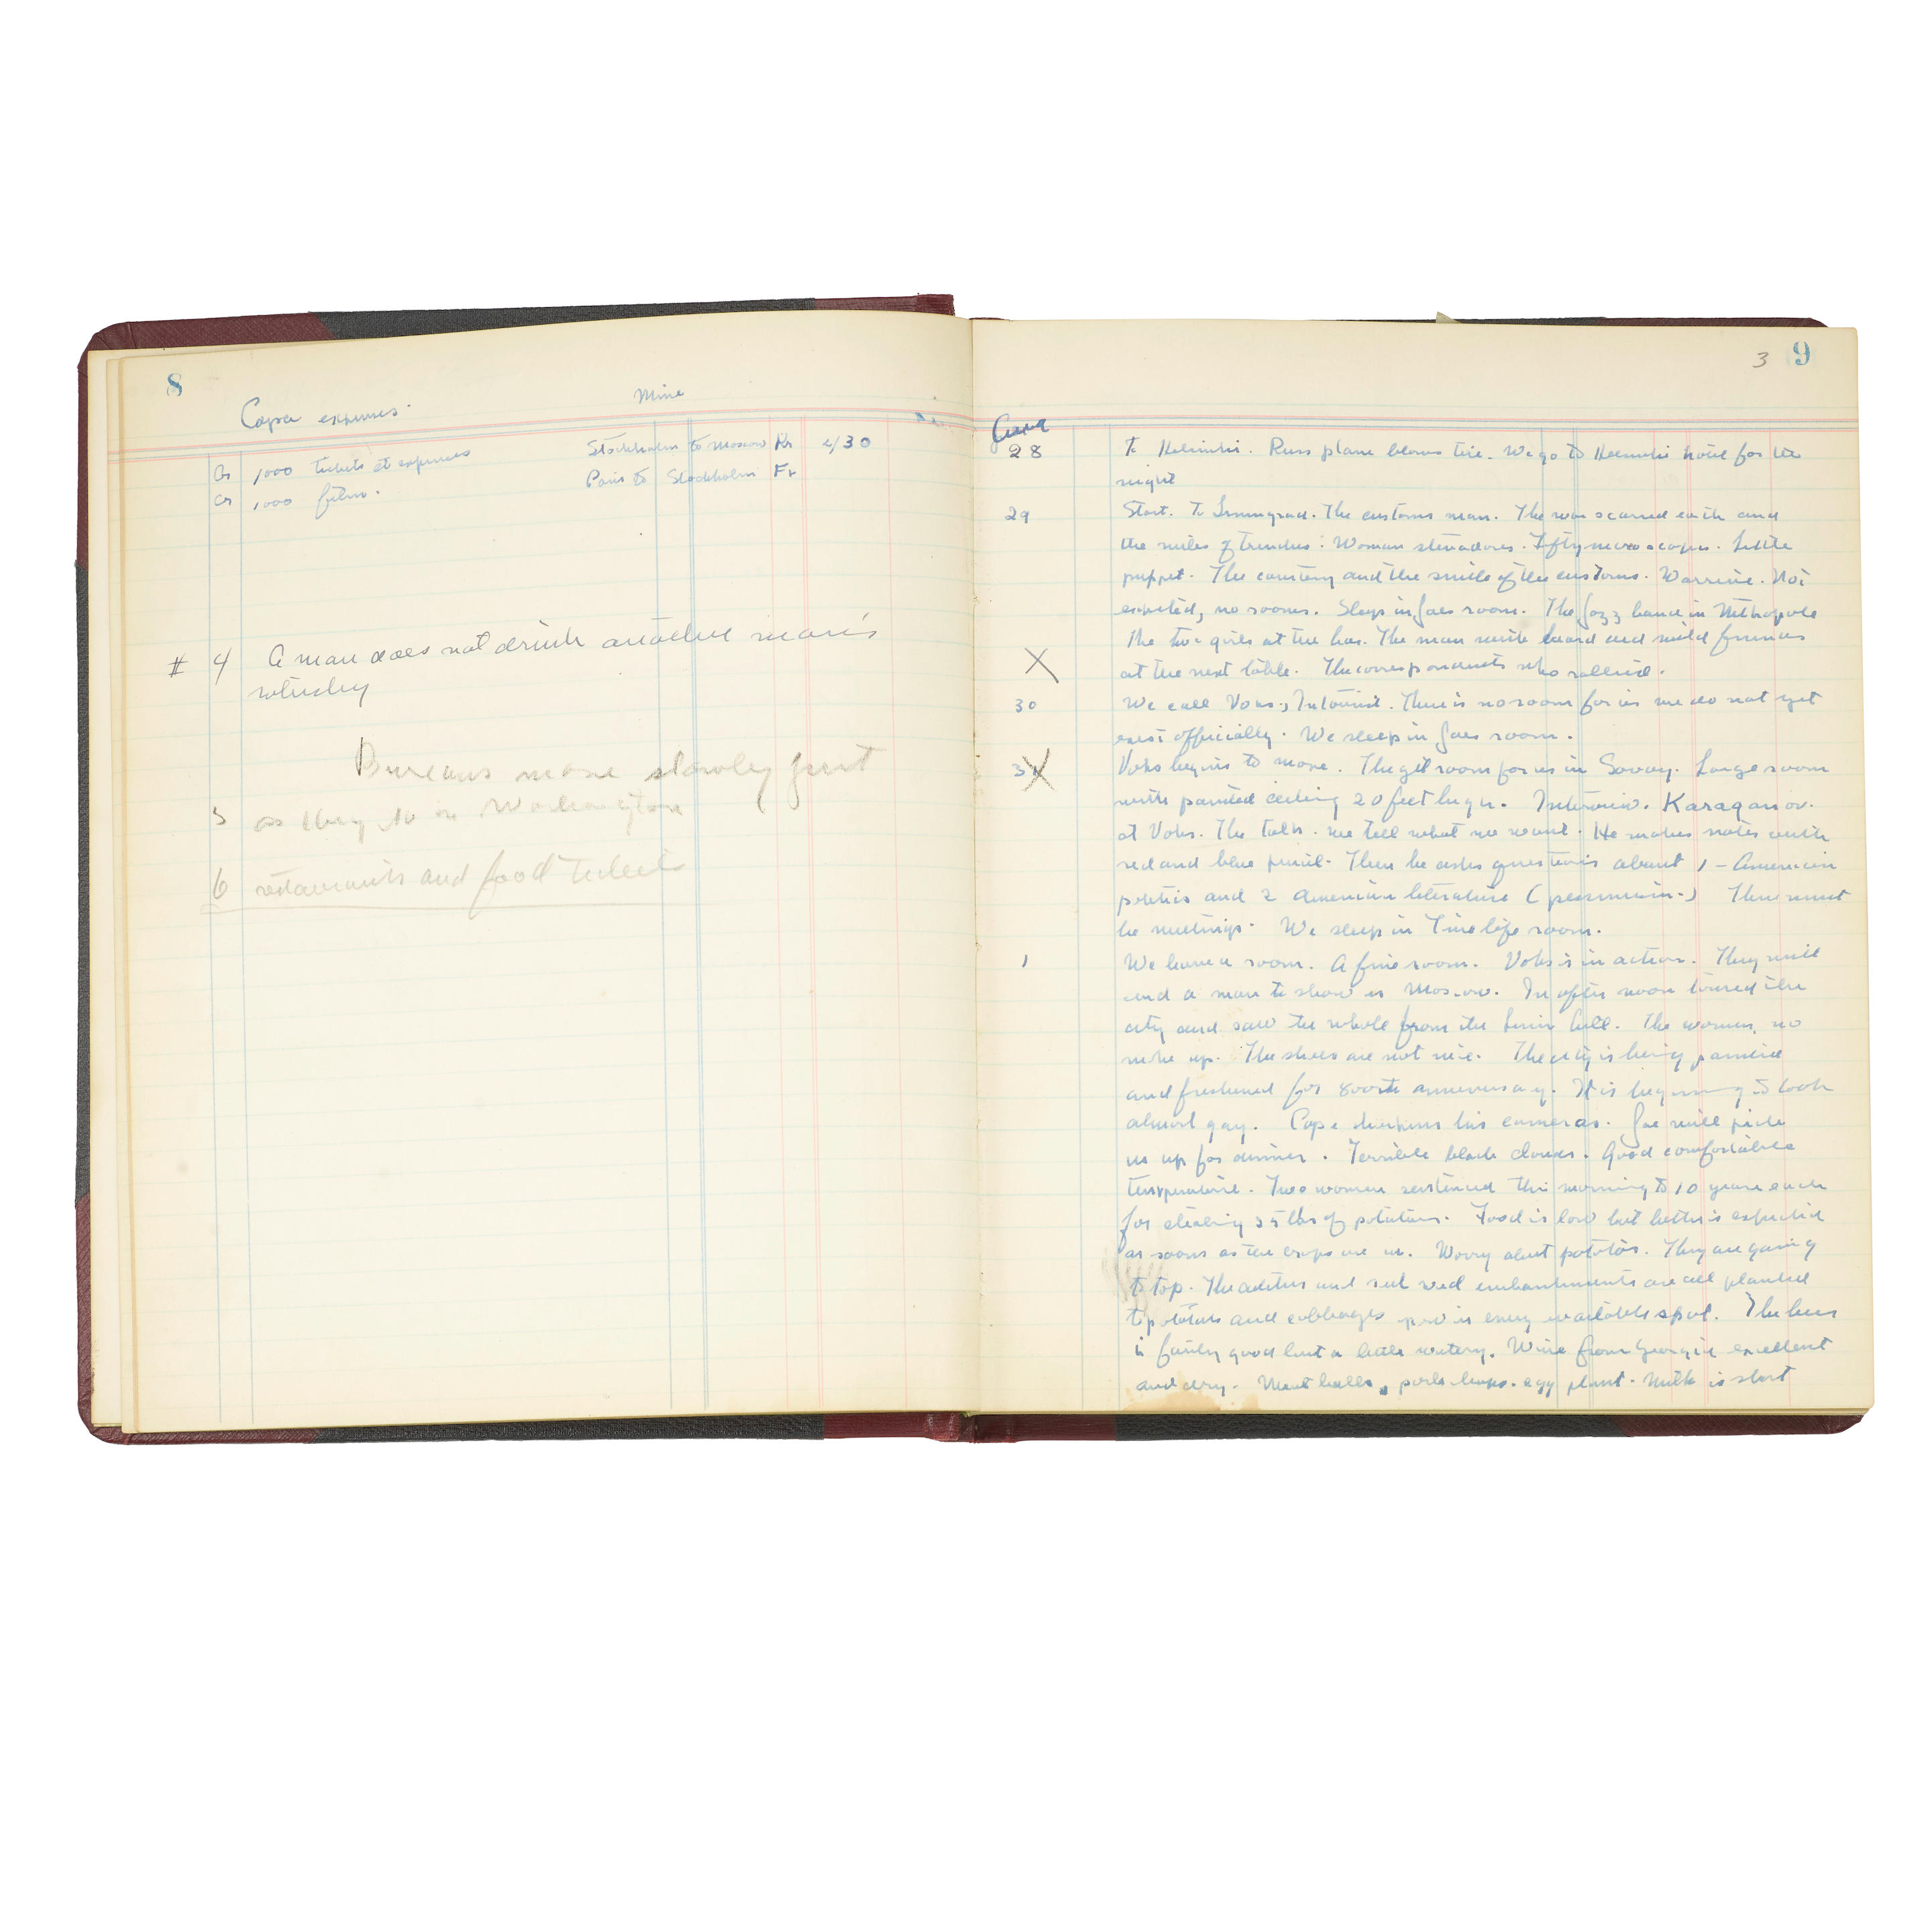 8
Capa expenses.
Mine
Cr 1000 tickets et expenses
Stockholm to Moscow Kr 430
Cr 1000 films.
Paris to Stockholm Fr
# 4 A man does not drink another man's
whiskey
Bureaus move slowly just
5 as they do in Washington
6 restaurants and food tickets
3 9
28 To Helsinki. Russ plane blows tire. We go to Helsinki hotel for the
night
29 Start. To Leningrad. The customs man. The war scarred earth and
the miles of trenches. Woman stevadores. Fifty microscopes. Little
puppet. The courtesy and the smile of the customs. Not
expected, no rooms. Sleep in Joes room. The Jazz band in Metropole
The two girls at the bar. The man with beard and mild
at the next table. The correspondents who rallied.
30 We call Voks, Intourist. There is no room for us we do not yet
exist officially. We sleep in Joes room.
31 Voks begins to move. The get room for us in Savoy. Large room
with painted ceiling 20 feet high. Interview. Karaganov.
at Voks. The talk. we tell what we want. He makes notes with
red and blue pencil. Then he asks questions about 1 - American
politics and 2 American literature ( ) There must
be meetings. We sleep in Time life room.
1 We have a room. A fine room. Voks is in action. They will
send a man to show us Moscow. In after noon toured the
city and saw the whole from the Lenin hill. The women, no
make up. The shoes are not nice. The city is being painted
and freshened for 800th anniversary. It is beginning to look
almost gay. Capa his cameras. Joe will pick
us up for dinner. Terrible black clouds. Good comfortable
temperature. Two women sentenced this morning to 10 years each
for stealing 35 lbs of potatoes. Food is low but better is expected
as soon as the crops are in. Worry about potatoes. They are going
to top. The ditches and rail road embankments are all planted
to potatoes and cabbages grow in every available spot. The beer
is fairly good but a little watery. Wine from Georgia excellent
and dry. Meat balls, pork chops. egg plant. Milk is short